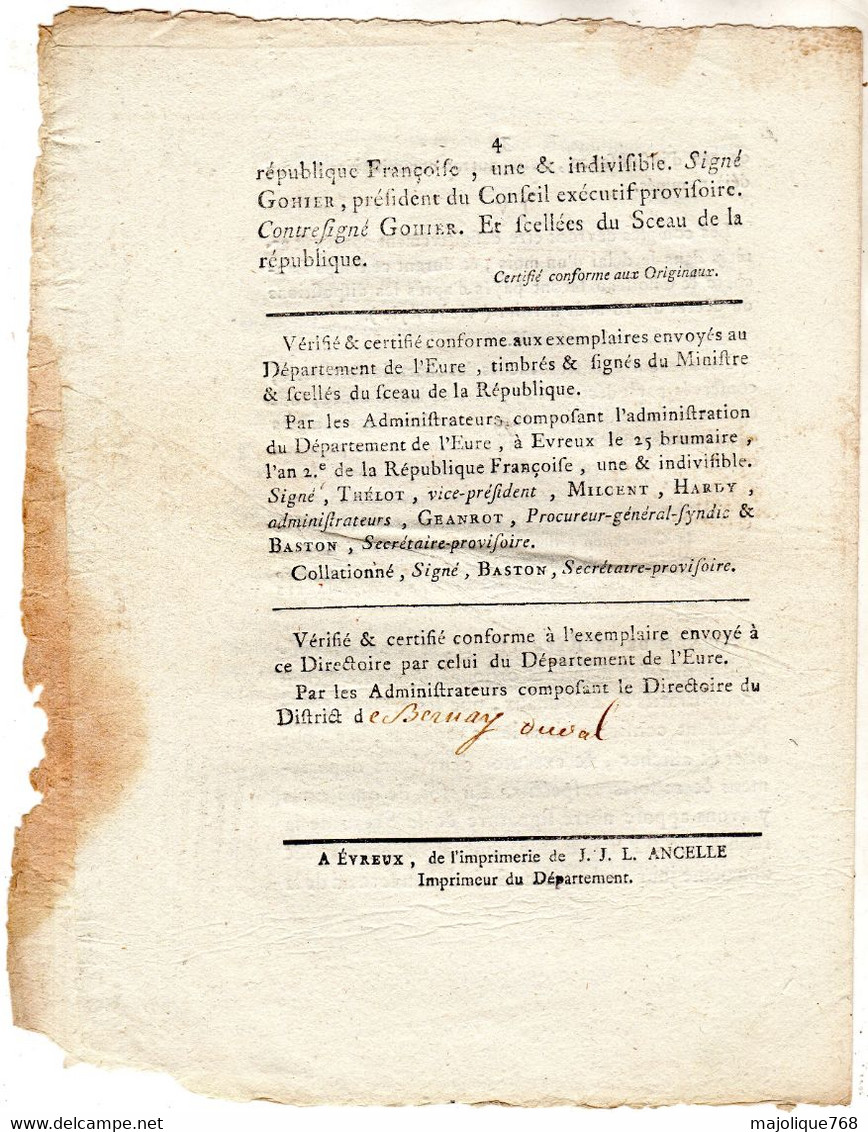 4
république Françoiſe , une & indiviſible. Signé
GOHIER , préſident du Conſeil exécutif proviſoire.
Contreſigné GOHIER. Et ſcellées du Sceau de la
république.
Certifié conforme aux Originaux.
Vérifié & certifié conforme aux exemplaires envoyés au
Département de l'Eure , timbrés & ſignés du Miniſtre
& ſcellés du ſceau de la République.
Par les Adminiſtrateurs compoſant l'adminiſtration
du Département de l'Eure , à Evreux le 25 brumaire ,
l'an 2.e de la République Françoiſe , une & indiviſible.
Signé , THÉLOT , vice-préſident , MILCENT , HARDY ,
adminiſtrateurs , GEANROT , Procureur-général-ſyndic &
BASTON , Secrétaire-proviſoire.
Collationné , Signé , BASTON , Secrétaire-proviſoire.
Vérifié & certifié conforme à l'exemplaire envoyé à
ce Directoire par celui du Département de l'Eure.
Par les Adminiſtrateurs compoſant le Directoire du
Diſtrict de Bernay duval
A ÉVREUX , de l'imprimerie de J. J. L. ANCELLE
Imprimeur du Département.
majolique768